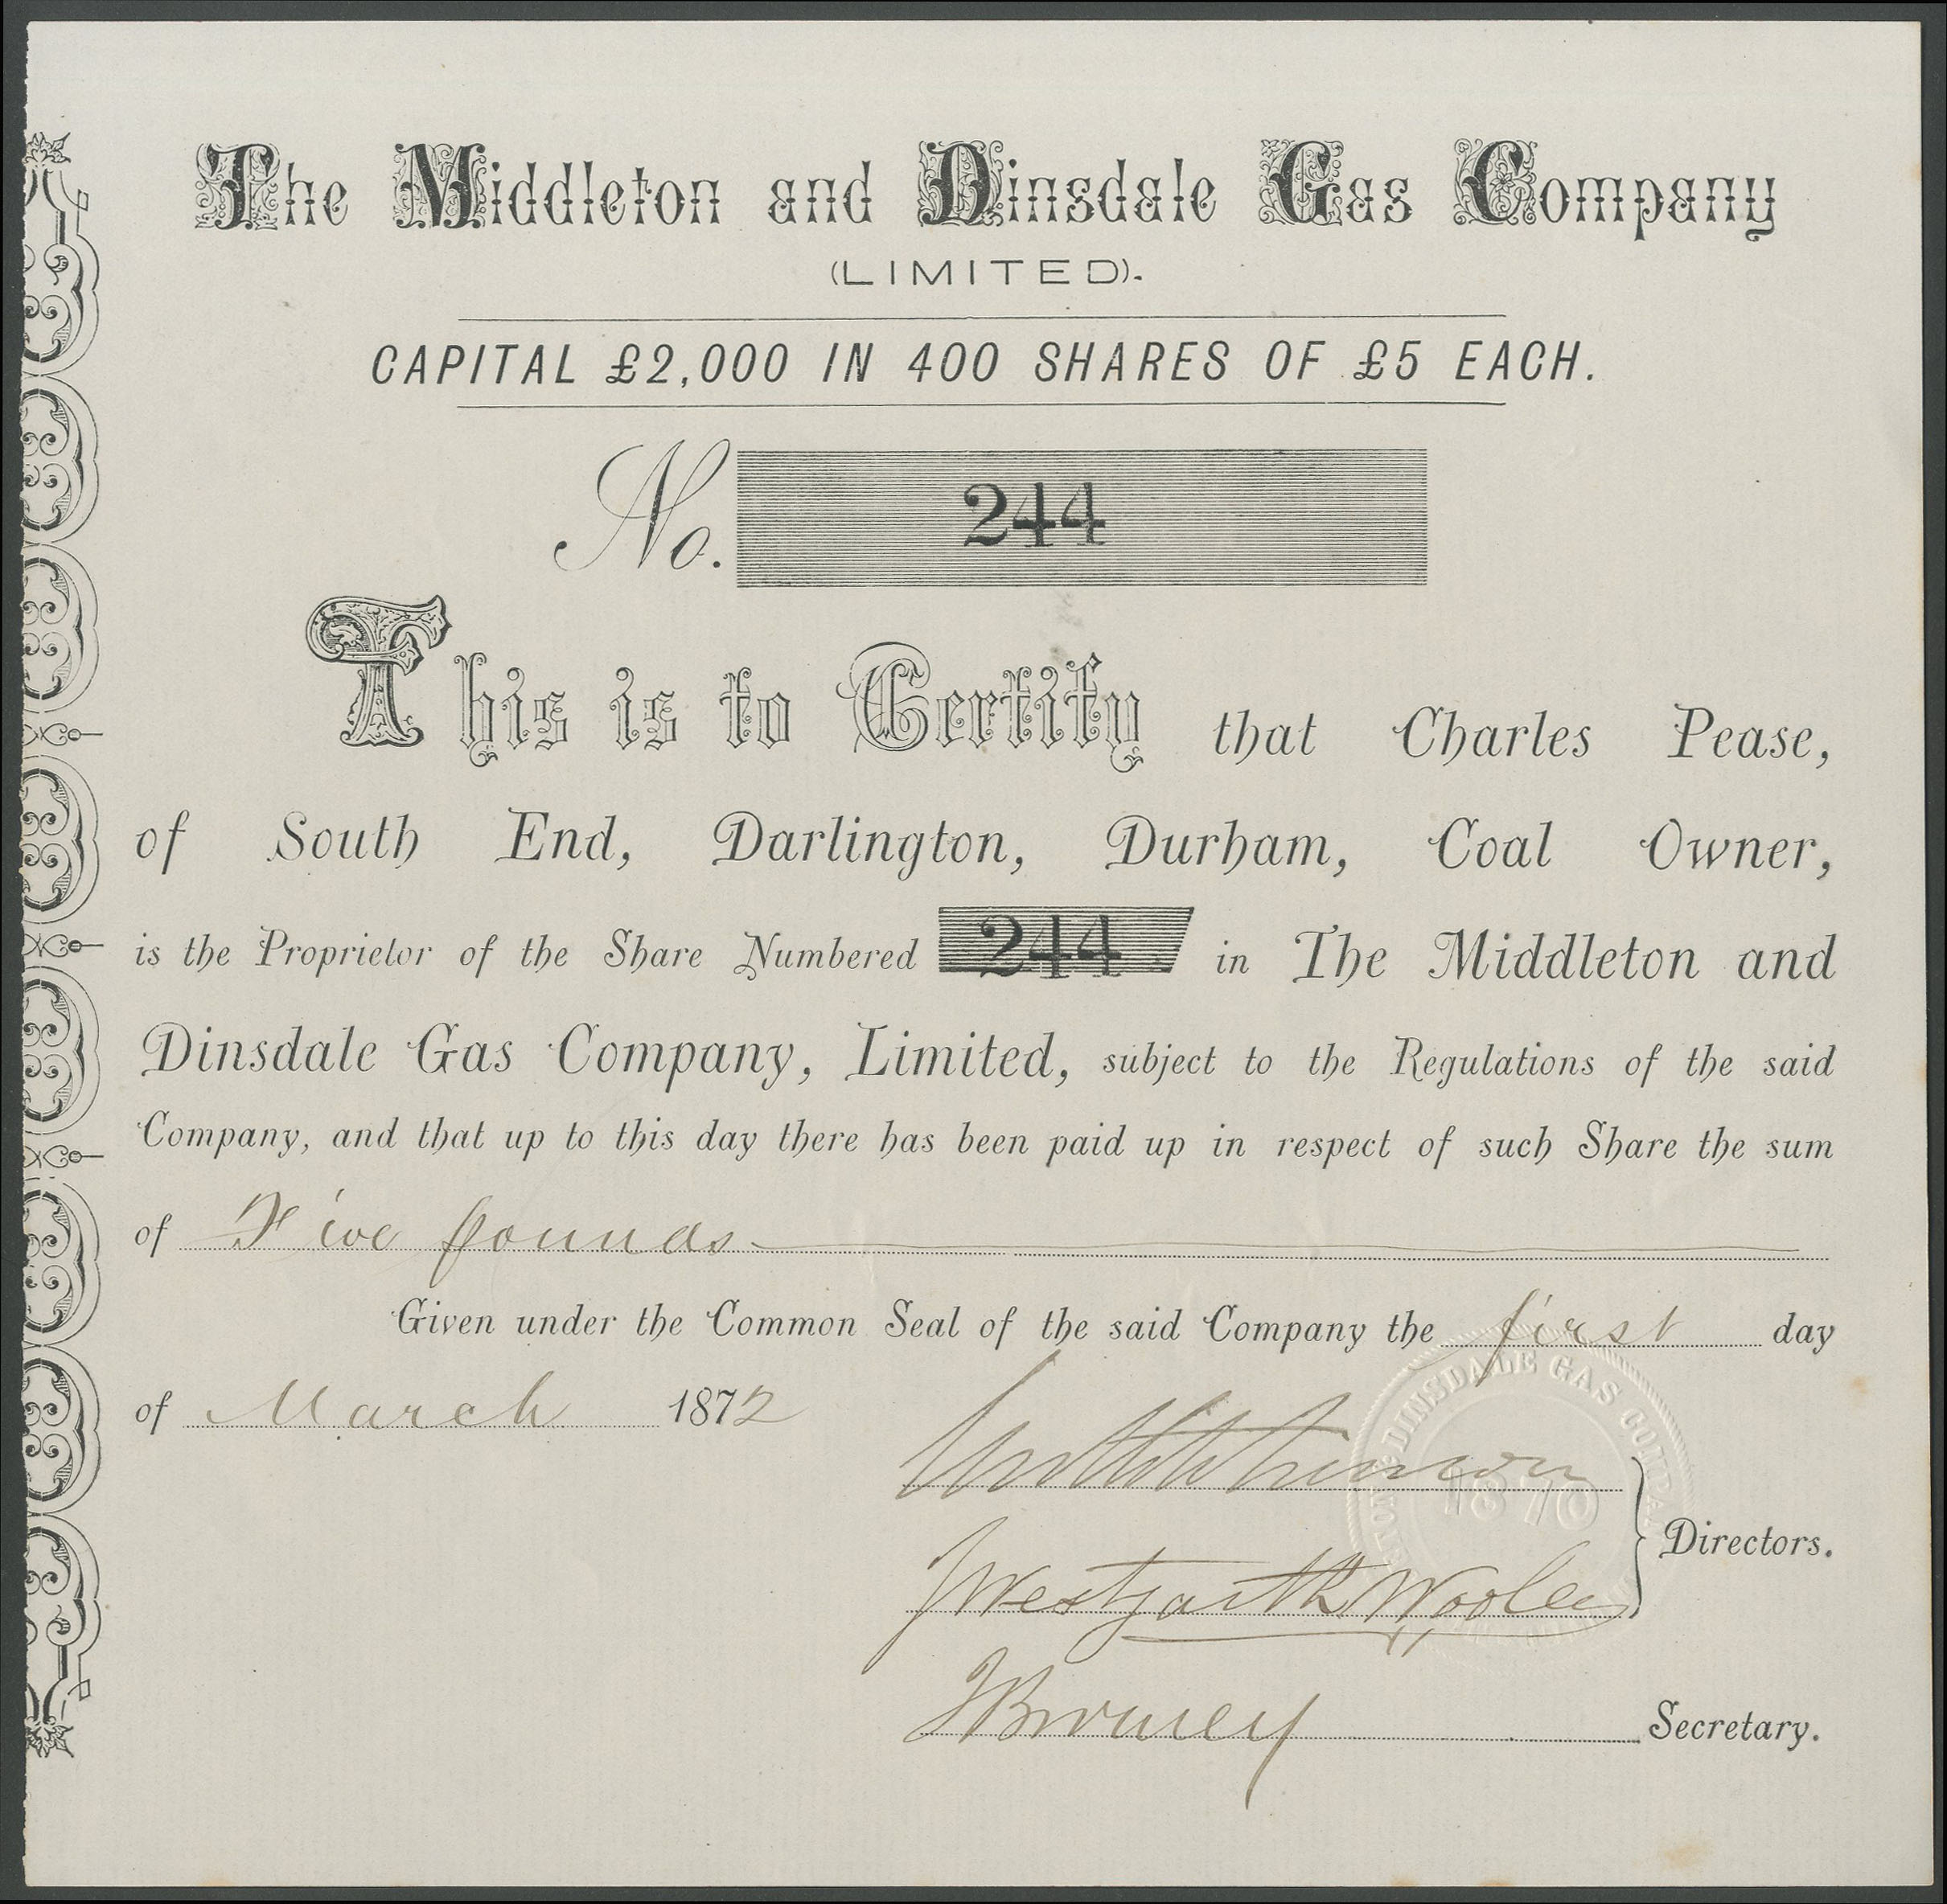 The Middleton and Dinsdale Gas Company
(LIMITED).
CAPITAL £2,000 IN 400 SHARES OF £5 EACH.
No. 244
This is to Certify that Charles Pease,
of South End, Darlington, Durham, Coal Owner,
is the Proprietor of the Share Numbered 244 in The Middleton and
Dinsdale Gas Company, Limited, subject to the Regulations of the said
Company, and that up to this day there has been paid up in respect of such Share the sum
of Five pounds
Given under the Common Seal of the said Company the first day
of March 1872
DINSDALE GAS COMPANY
1870
Directors.
J Westgarth Wooler
Secretary.